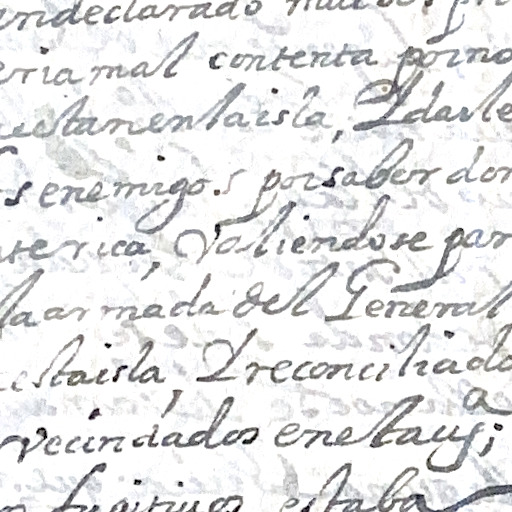 andeclarado
eria mal contenta por no
estan en la isla, I darle
s enemigos por saber don
se rica, valiendose par
la armada del General
esta isla, I reconciliado
vecindados en
fugitivos estaba